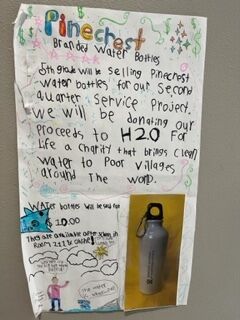 Pinecrest
Branded Water Bottles
5th grade will be Selling Pinecrest
water bottles for our Second
quarter Service Project.
we will be donating our
Proceeds to H2O For
Life a charity that brings clean
water to Poor Villages
around The world.
Water bottles will be sold for
$10.00
They are available after school in
Room 211